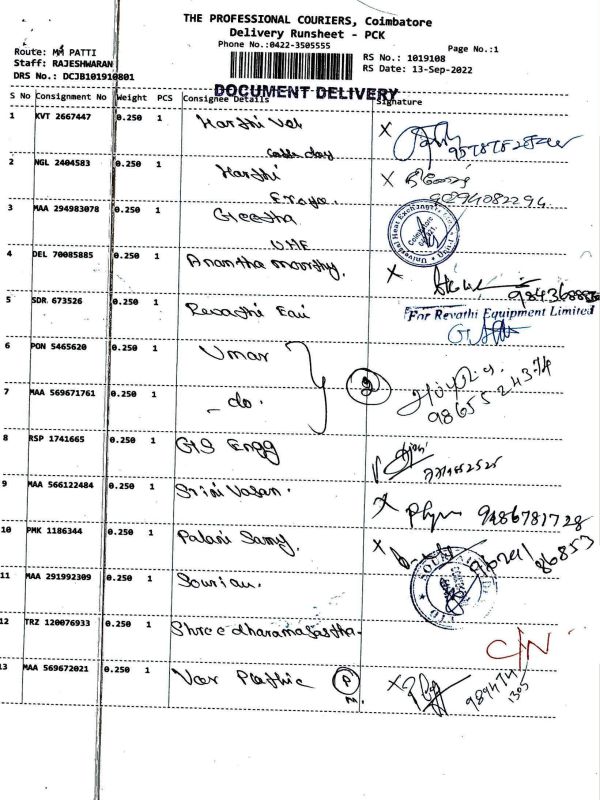 THE PROFESSIONAL COURIERS, Coimbatore
Delivery Runsheet - PCK
Phone No.:0422-3505555
Page No.:1
Route: MM PATTI
Staff: RAJESHWARAN
DRS No.: DCJB101910801
RS No.: 1019108
RS Date: 13-Sep-2022
DOCUMENT DELIVERY
S No Consignment No Weight PCS Consignee Details Signature
1 KVT 2667447 0.250 1 Harthi
2 NGL 2404583 0.250 1 Harthi
9094082294
3 MAA 294983078 0.250 1 Geetha
UHE
Universal Heat Exchangers Ltd
Coimbatore
4 DEL 70085885 0.250 1 Anantha moorthy.
5 SDR 673526 0.250 1 Revathi
For Revathi Equipment Limited
6 PON 5465620 0.250 1 Umar
7 MAA 569671761 0.250 1 - do. 2
9865524374
8 RSP 1741665 0.250 1 GS Engg
9 MAA 566122484 0.250 1 Srini Vasan.
9486781728
10 PMK 1186344 0.250 1 Palani Samy.
86853
11 MAA 291992309 0.250 1
12 TRZ 120076933 0.250 1 Shree dharamasastha.
13 MAA 569672021 0.250 1 P
989474
1305